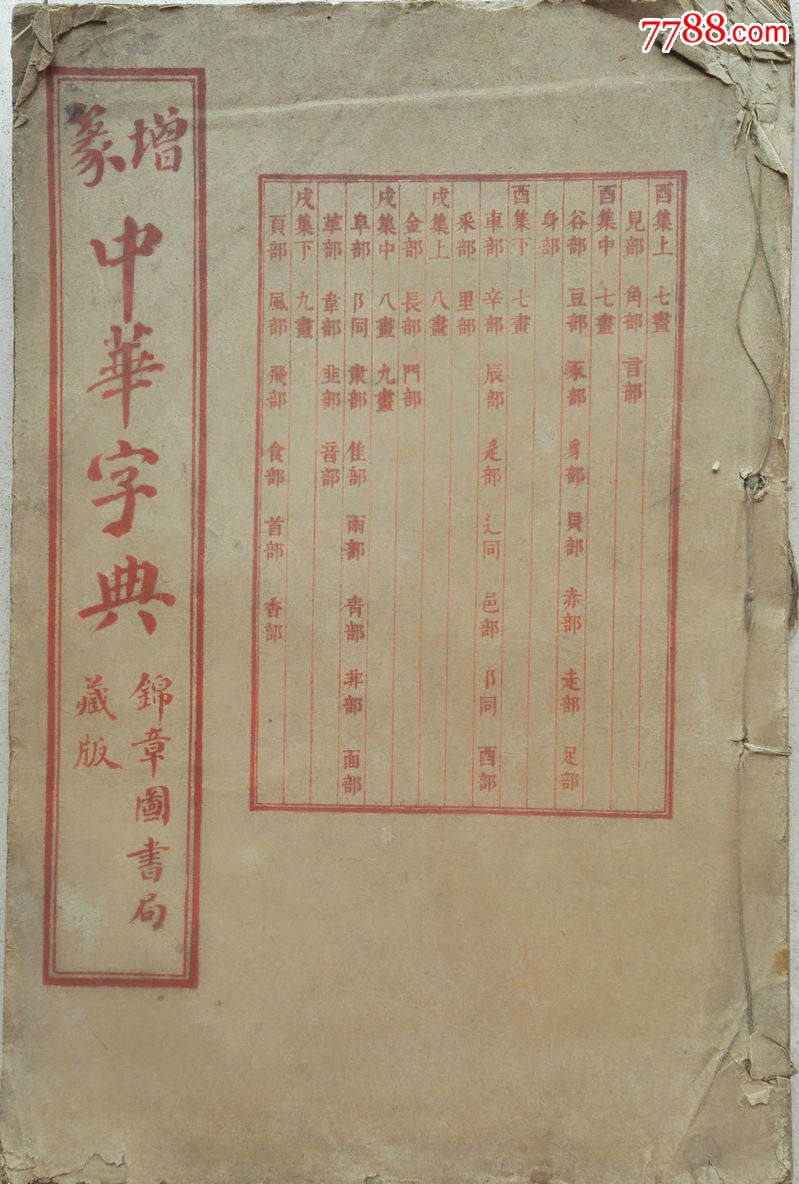 7788.com
酉集上 七畫
見部 角部 言部
酉集中 七畫
谷部 豆部 豕部 豸部 貝部 赤部 走部 足部
身部
酉集下 七畫
車部 辛部 辰部 辵部 辶同 邑部 阝同 酉部
釆部 里部
戌集上 八畫
金部 長部 門部
戌集中 八畫 九畫
阜部 阝同 隶部 隹部 雨部 青部 非部 面部
革部 韋部 韭部 音部
戌集下 九畫
頁部 風部 飛部 食部 首部 香部
增篆
中華字典
錦章圖書局
藏版